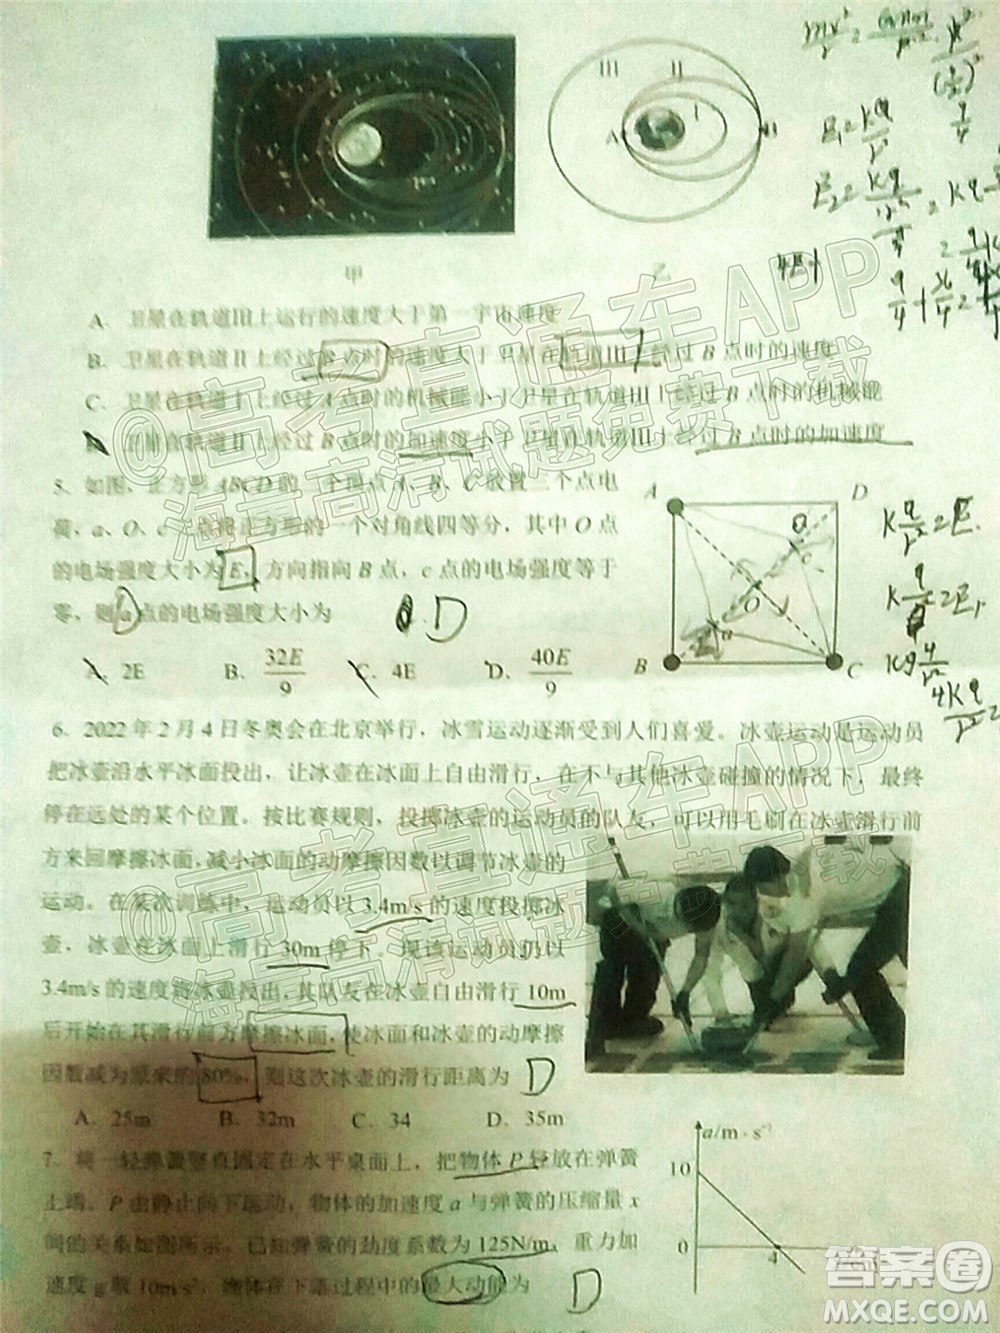 III II I
A B
甲 乙
A．卫星在轨道III上运行的速度大于第一宇宙速度
B．卫星在轨道II上经过B点时的速度大于卫星在轨道III上经过B点时的速度
C．卫星在轨道I上经过A点时的机械能小于卫星在轨道III上经过B点时的机械能
卫星在轨道II上经过B点时的加速度小于卫星在轨道III上经过B点时的加速度
5．如图，正方形ABCD的三个顶点A、B、C放置三个点电
荷，a、O、c三点将正方形的一个对角线四等分，其中O点
的电场强度大小为E，方向指向B点，c点的电场强度等于
零，则a点的电场强度大小为 D
A．2E B．32E/9 C．4E D．40E/9
A D
c
O
a
B C
6．2022年2月4日冬奥会在北京举行，冰雪运动逐渐受到人们喜爱。冰壶运动是运动员
把冰壶沿水平冰面投出，让冰壶在冰面上自由滑行，在不与其他冰壶碰撞的情况下，最终
停在远处的某个位置。按比赛规则，投掷冰壶的运动员的队友，可以用毛刷在冰壶滑行前
方来回摩擦冰面，减小冰面的动摩擦因数以调节冰壶的
运动。在某次训练中，运动员以3.4m/s的速度投掷冰
壶，冰壶在冰面上滑行30m停下。现该运动员仍以
3.4m/s的速度将冰壶投出，其队友在冰壶自由滑行10m
后开始在其滑行前方摩擦冰面，使冰面和冰壶的动摩擦
因数减为原来的80%，则这次冰壶的滑行距离为 D
A．25m B．32m C．34 D．35m
7．将一轻弹簧竖直固定在水平桌面上，把物体P轻放在弹簧
上端，P由静止向下运动，物体的加速度a与弹簧的压缩量x
间的关系如图所示。已知弹簧的劲度系数为125N/m，重力加
速度g取10m/s²，物体在下落过程中的最大动能为 D
a/m·s⁻²
10
0 4
@高考直通车APP
海量高清试题免费下载
答案圈
MXQE.COM